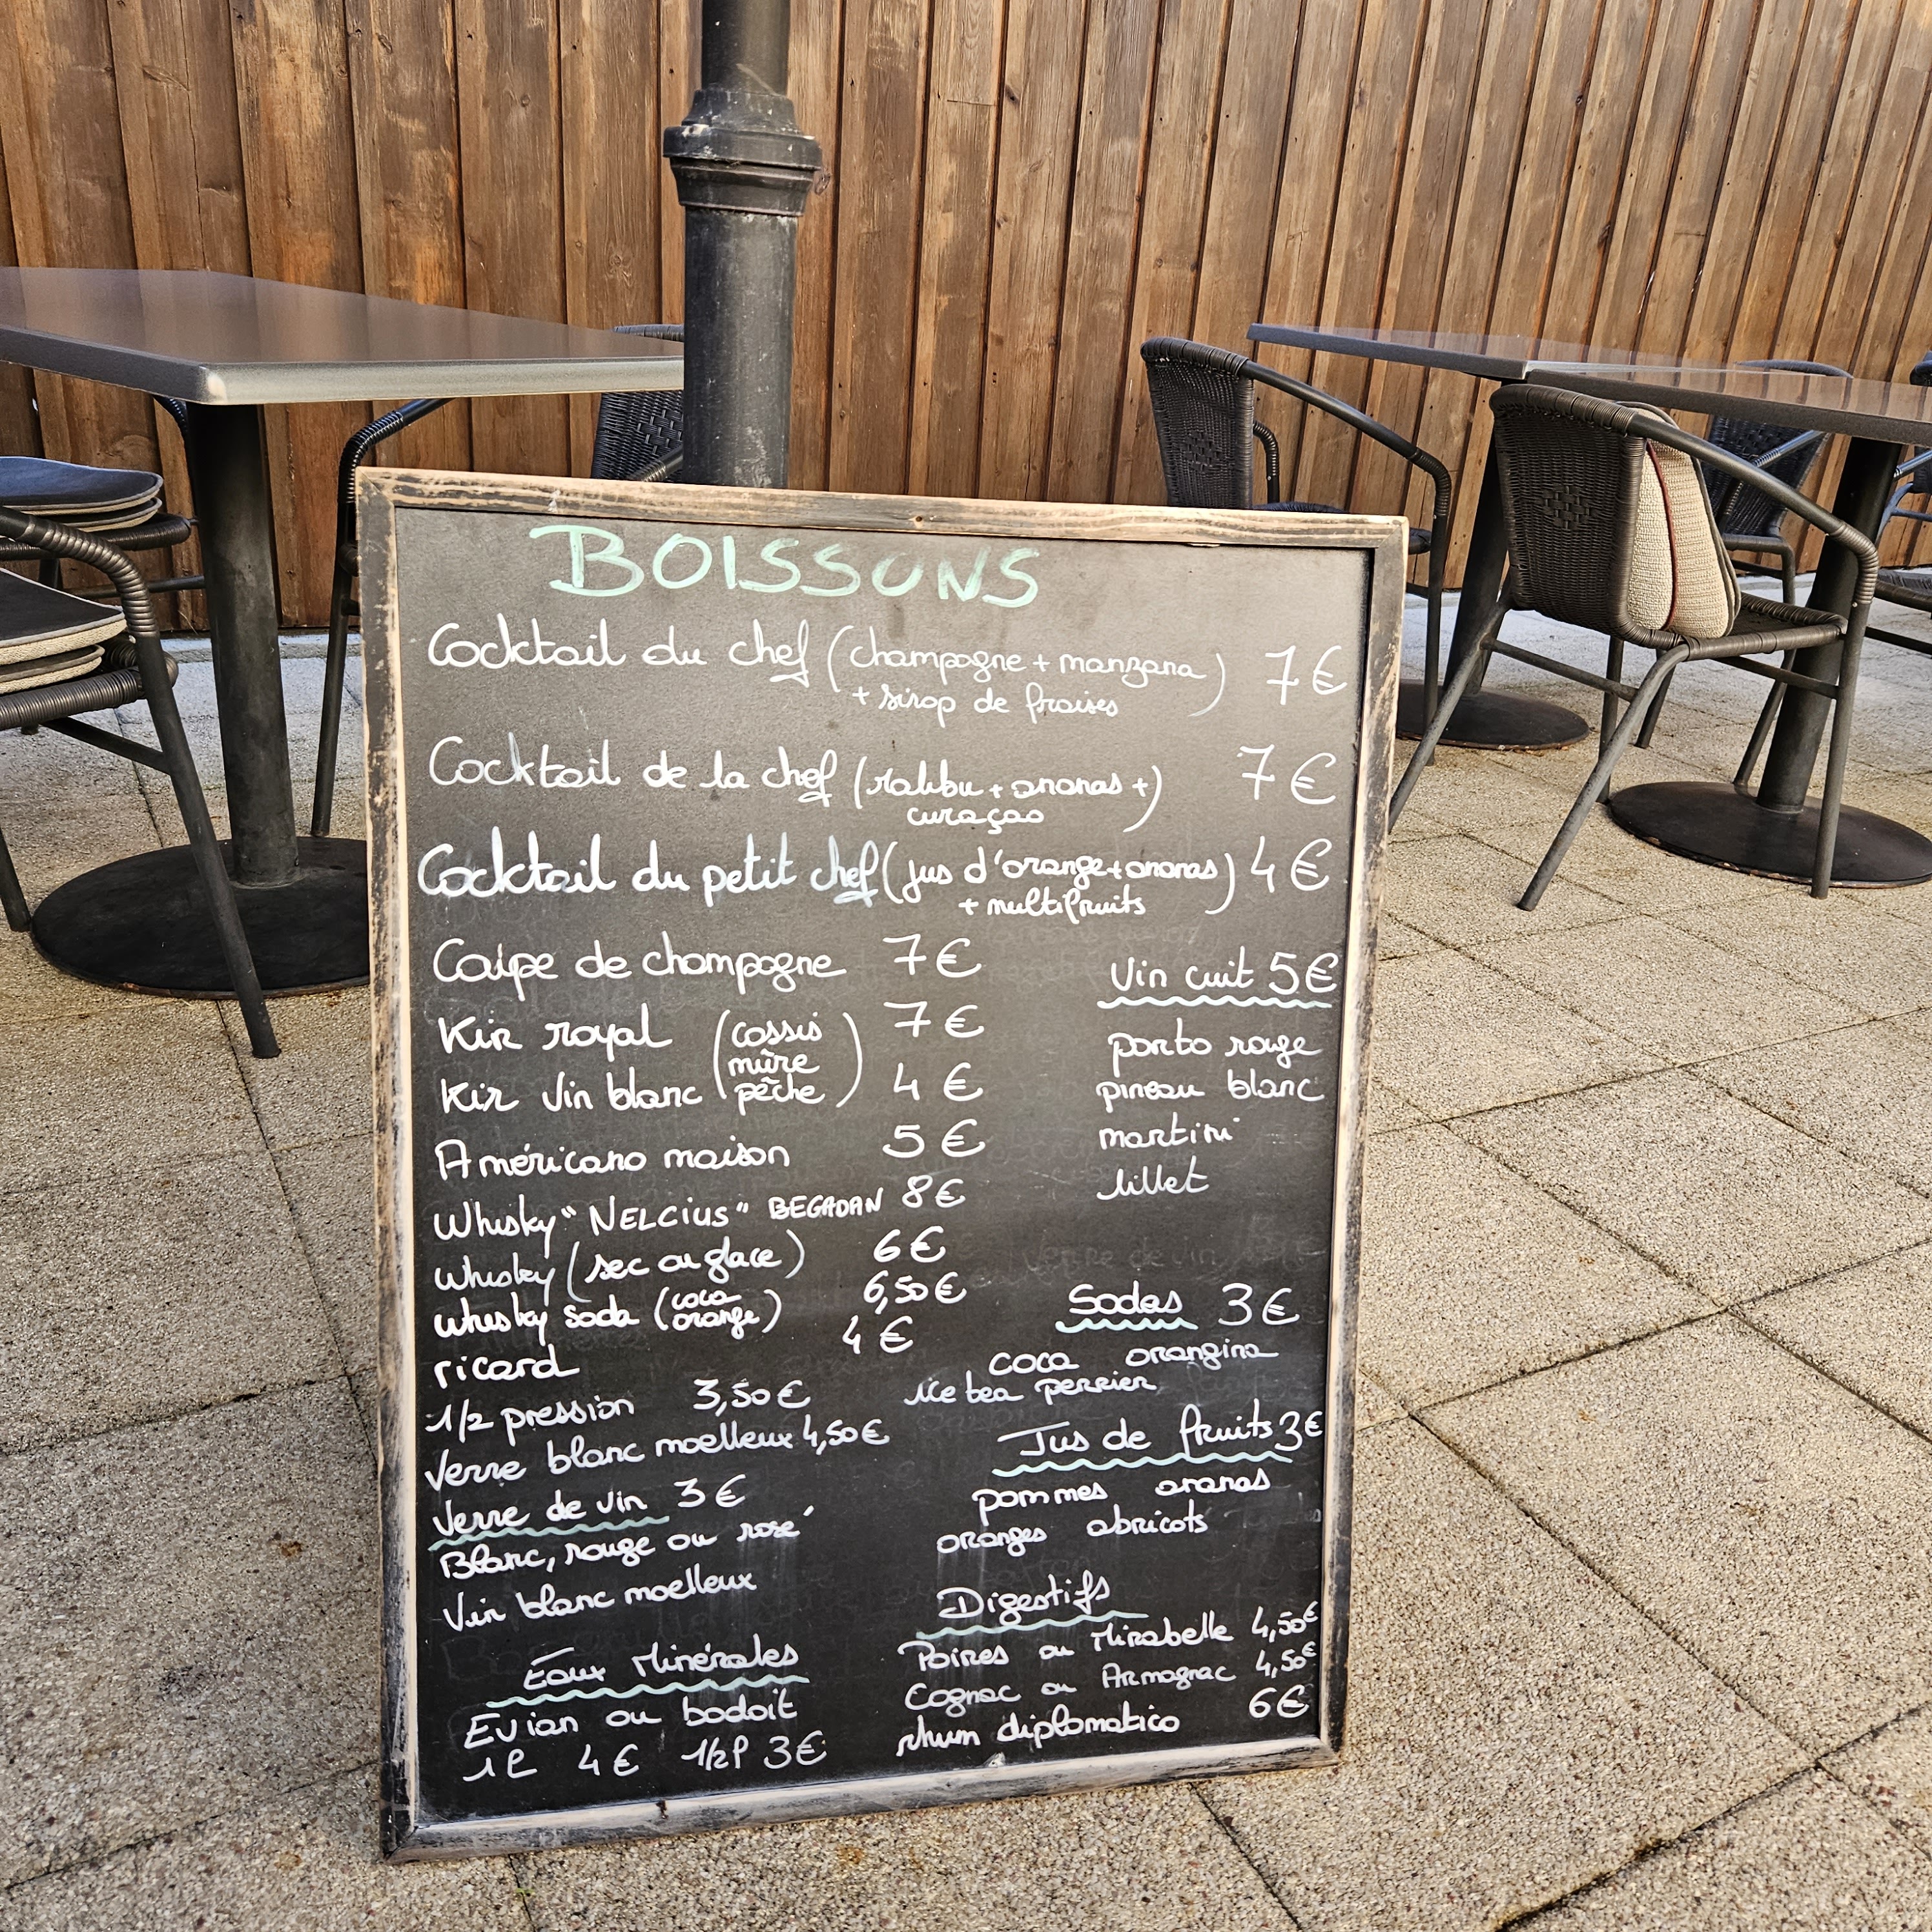 BOISSONS
Cocktail du chef (champagne + manzana) 7€
+ sirop de fraises
Cocktail de la chef (malibu + ananas +) 7€
curaçao
Cocktail du petit chef (jus d'orange + ananas) 4€
+ multifruits
Coupe de champagne 7€
Kir royal (cassis 7€
mûre
Kir vin blanc pêche) 4€
Américano maison 5€
Whisky "NELCIUS" BEGADAN 8€
Whisky (sec ou glace) 6€
whisky soda (coca orange) 6,50€
ricard 4€
1/2 pression 3,50€
Verre blanc moelleux 4,50€
Verre de vin 3€
Blanc, rouge ou rosé
Vin blanc moelleux
Eaux Minérales
Evian ou badoit
1l 4€ 1/2l 3€
Vin cuit 5€
porto rouge
pineau blanc
martini
lillet
Sodas 3€
coca orangina
ice tea perrier
Jus de fruits 3€
pommes ananas
oranges abricots
Digestifs
Poires ou Mirabelle 4,50€
Cognac ou Armagnac 4,50€
rhum diplomatico 6€